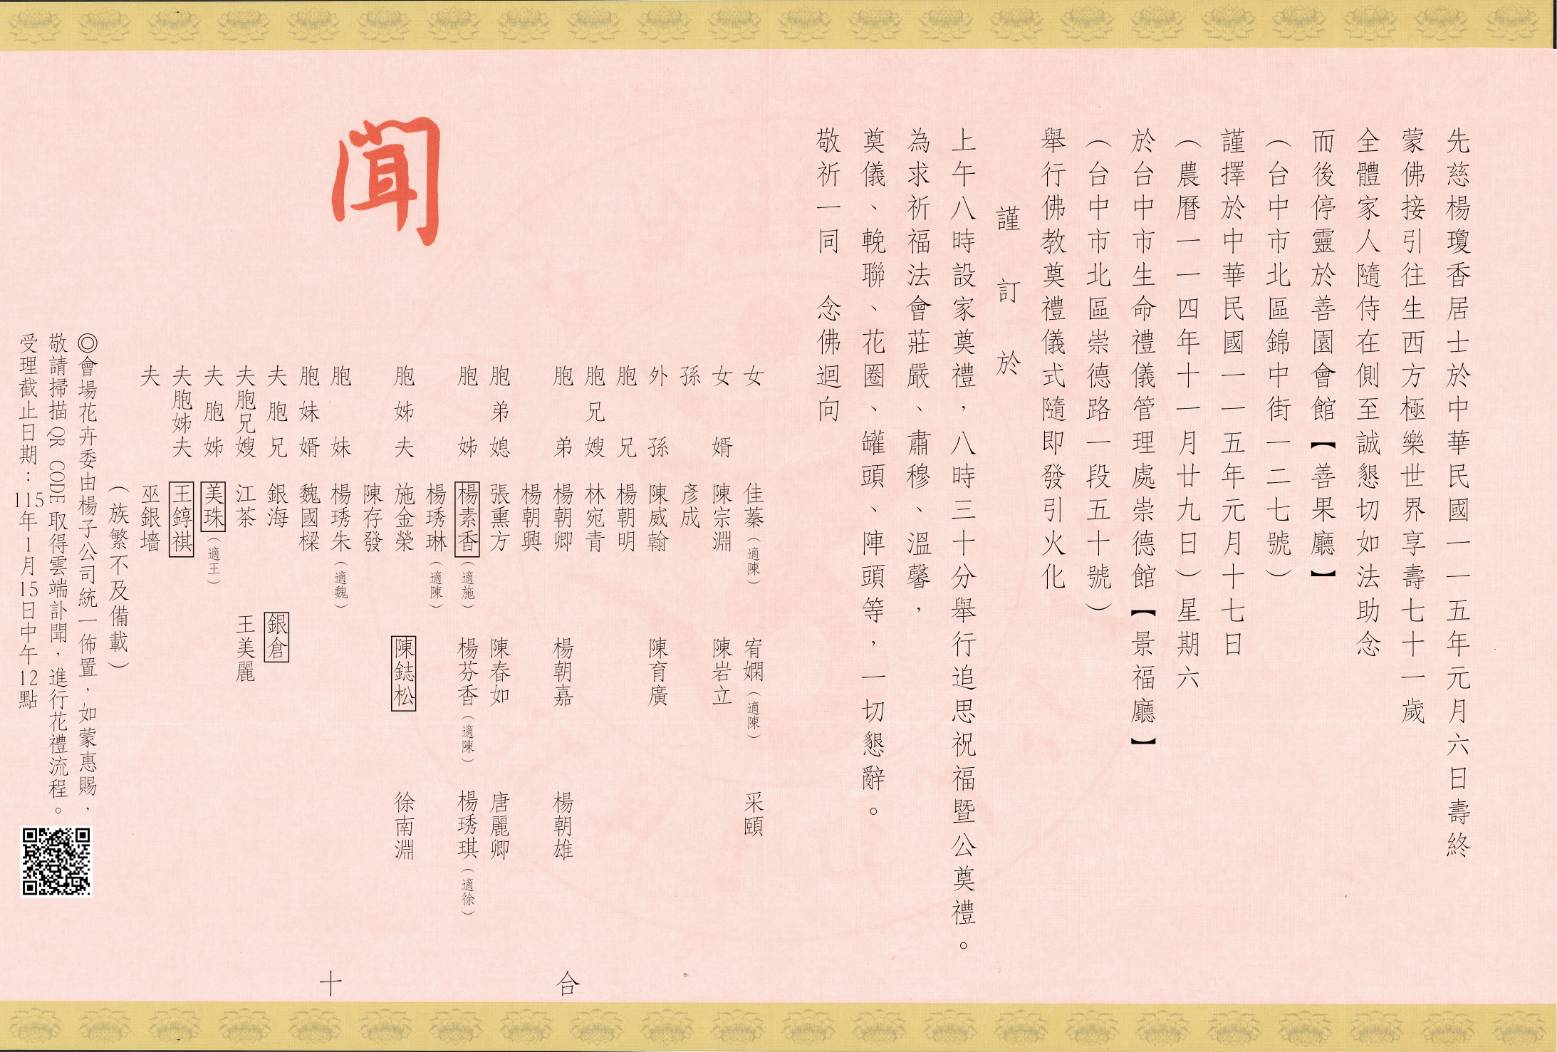 先慈楊瓊香居士於中華民國一一五年元月六日壽終
蒙佛接引往生西方極樂世界享壽七十一歲
全體家人隨侍在側至誠懇切如法助念
而後停靈於善園會館【善果廳】
（台中市北區錦中街一二七號）
謹擇於中華民國一一五年元月十七日
（農曆一一四年十一月廿九日）星期六
於台中市生命禮儀管理處崇德館【景福廳】
（台中市北區崇德路一段五十號）
舉行佛教奠禮儀式隨即發引火化
謹訂於
上午八時設家奠禮，八時三十分舉行追思祝福暨公奠禮。
為求祈福法會莊嚴、肅穆、溫馨，
奠儀、輓聯、花圈、罐頭、陣頭等，一切懇辭。
敬祈一同 念佛迴向
女 佳蓁（適陳） 宥嫻（適陳） 采頤
女婿 陳宗淵 陳岩立
孫 彥成
外孫 陳威翰 陳育廣
胞兄 楊朝明
胞兄嫂 林宛青
胞弟 楊朝卿 楊朝嘉 楊朝雄
楊朝興
胞弟媳 張熏方 陳春如 唐麗卿
胞姊 楊素香（適施） 楊芬香（適陳） 楊琇琪（適徐）
楊琇琳（適陳）
胞姊夫 施金榮 陳鋕松 徐南淵
陳存發
胞妹 楊琇朱（適魏）
胞妹婿 魏國樑
夫胞兄 銀海 銀倉
夫胞兄嫂 江茶 王美麗
夫胞姊 美珠（適王）
夫胞姊夫 王錞祺
夫 巫銀墻
（族繁不及備載）
合十
聞
◎會場花卉委由楊子公司統一佈置，如蒙惠賜，
敬請掃描QR CODE取得雲端訃聞，進行花禮流程。
受理截止日期：115年1月15日中午12點